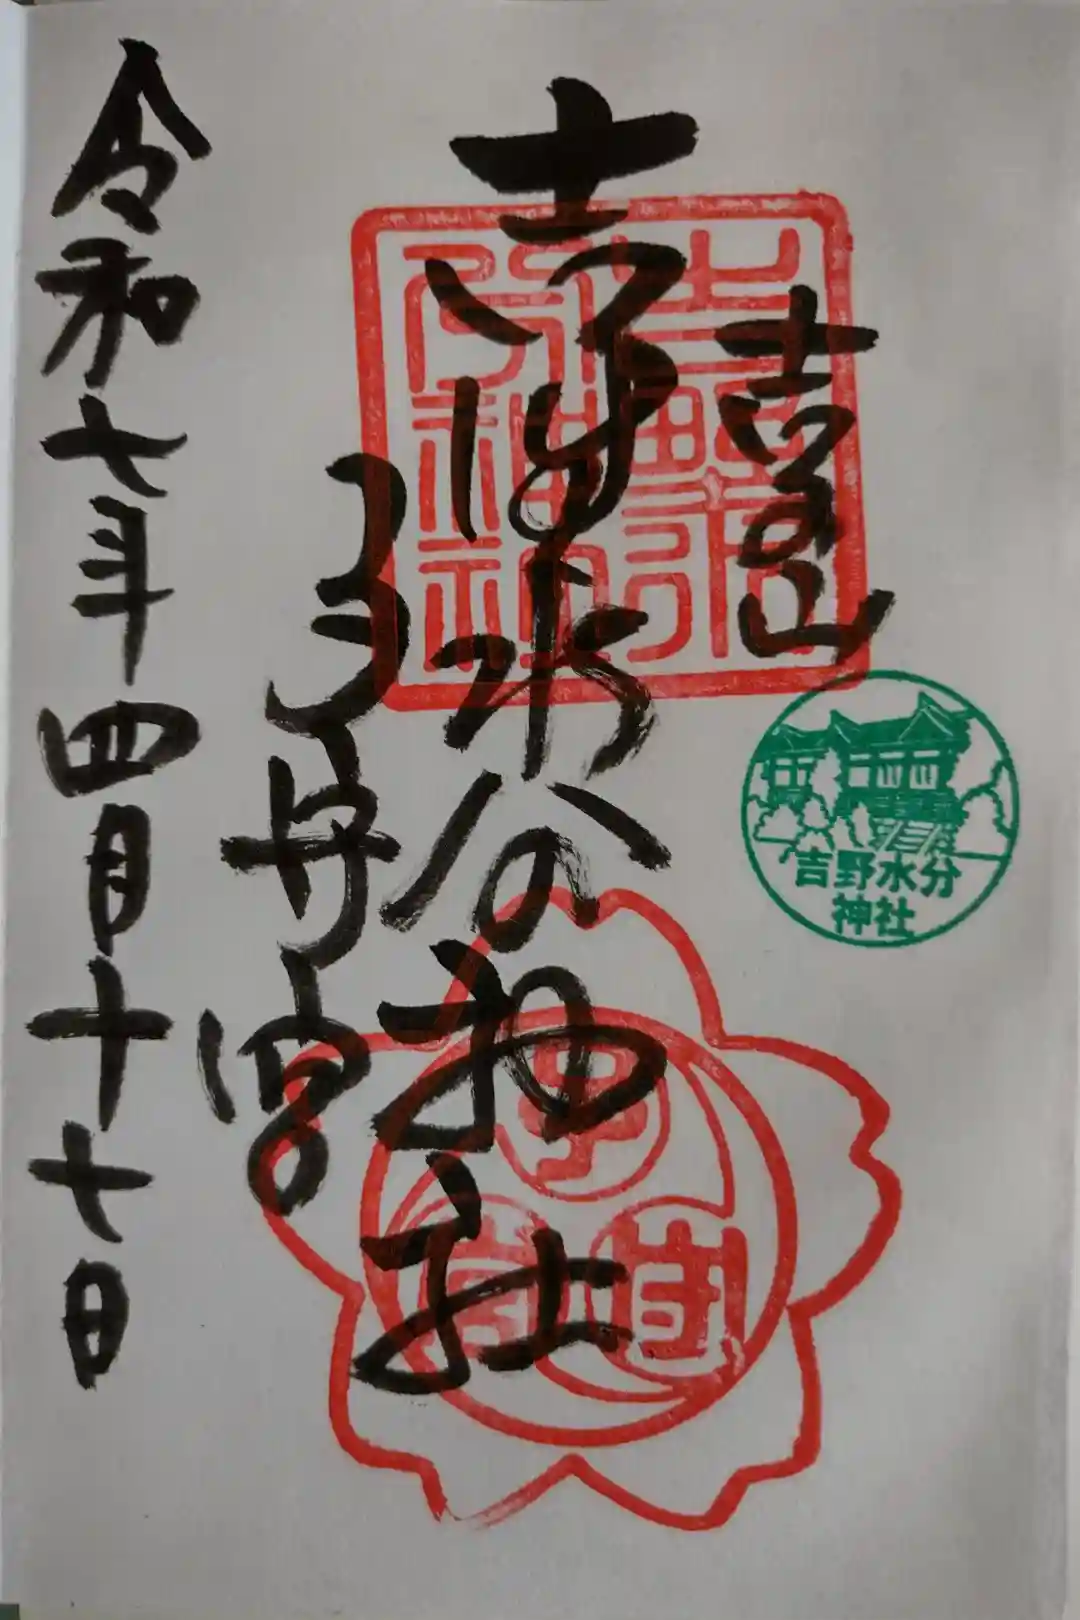 吉野山
吉野水分神社
令和七年四月十七日
吉野水
分神社
吉野水分
神社